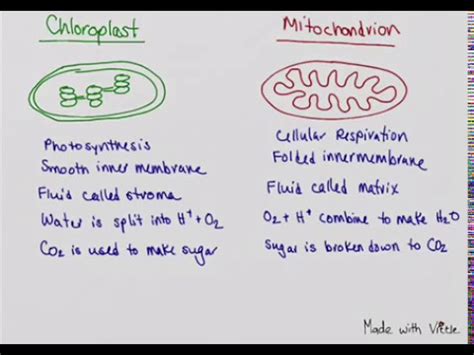 Chloroplast
Photosynthesis
Smooth inner membrane
Fluid called stroma
Water is split into H⁺ + O₂
CO₂ is used to make sugar
Mitochondrion
Cellular Respiration
Folded inner membrane
Fluid called matrix
O₂ + H⁺ combine to make H₂O
Sugar is broken down to CO₂
Made with Vittle.